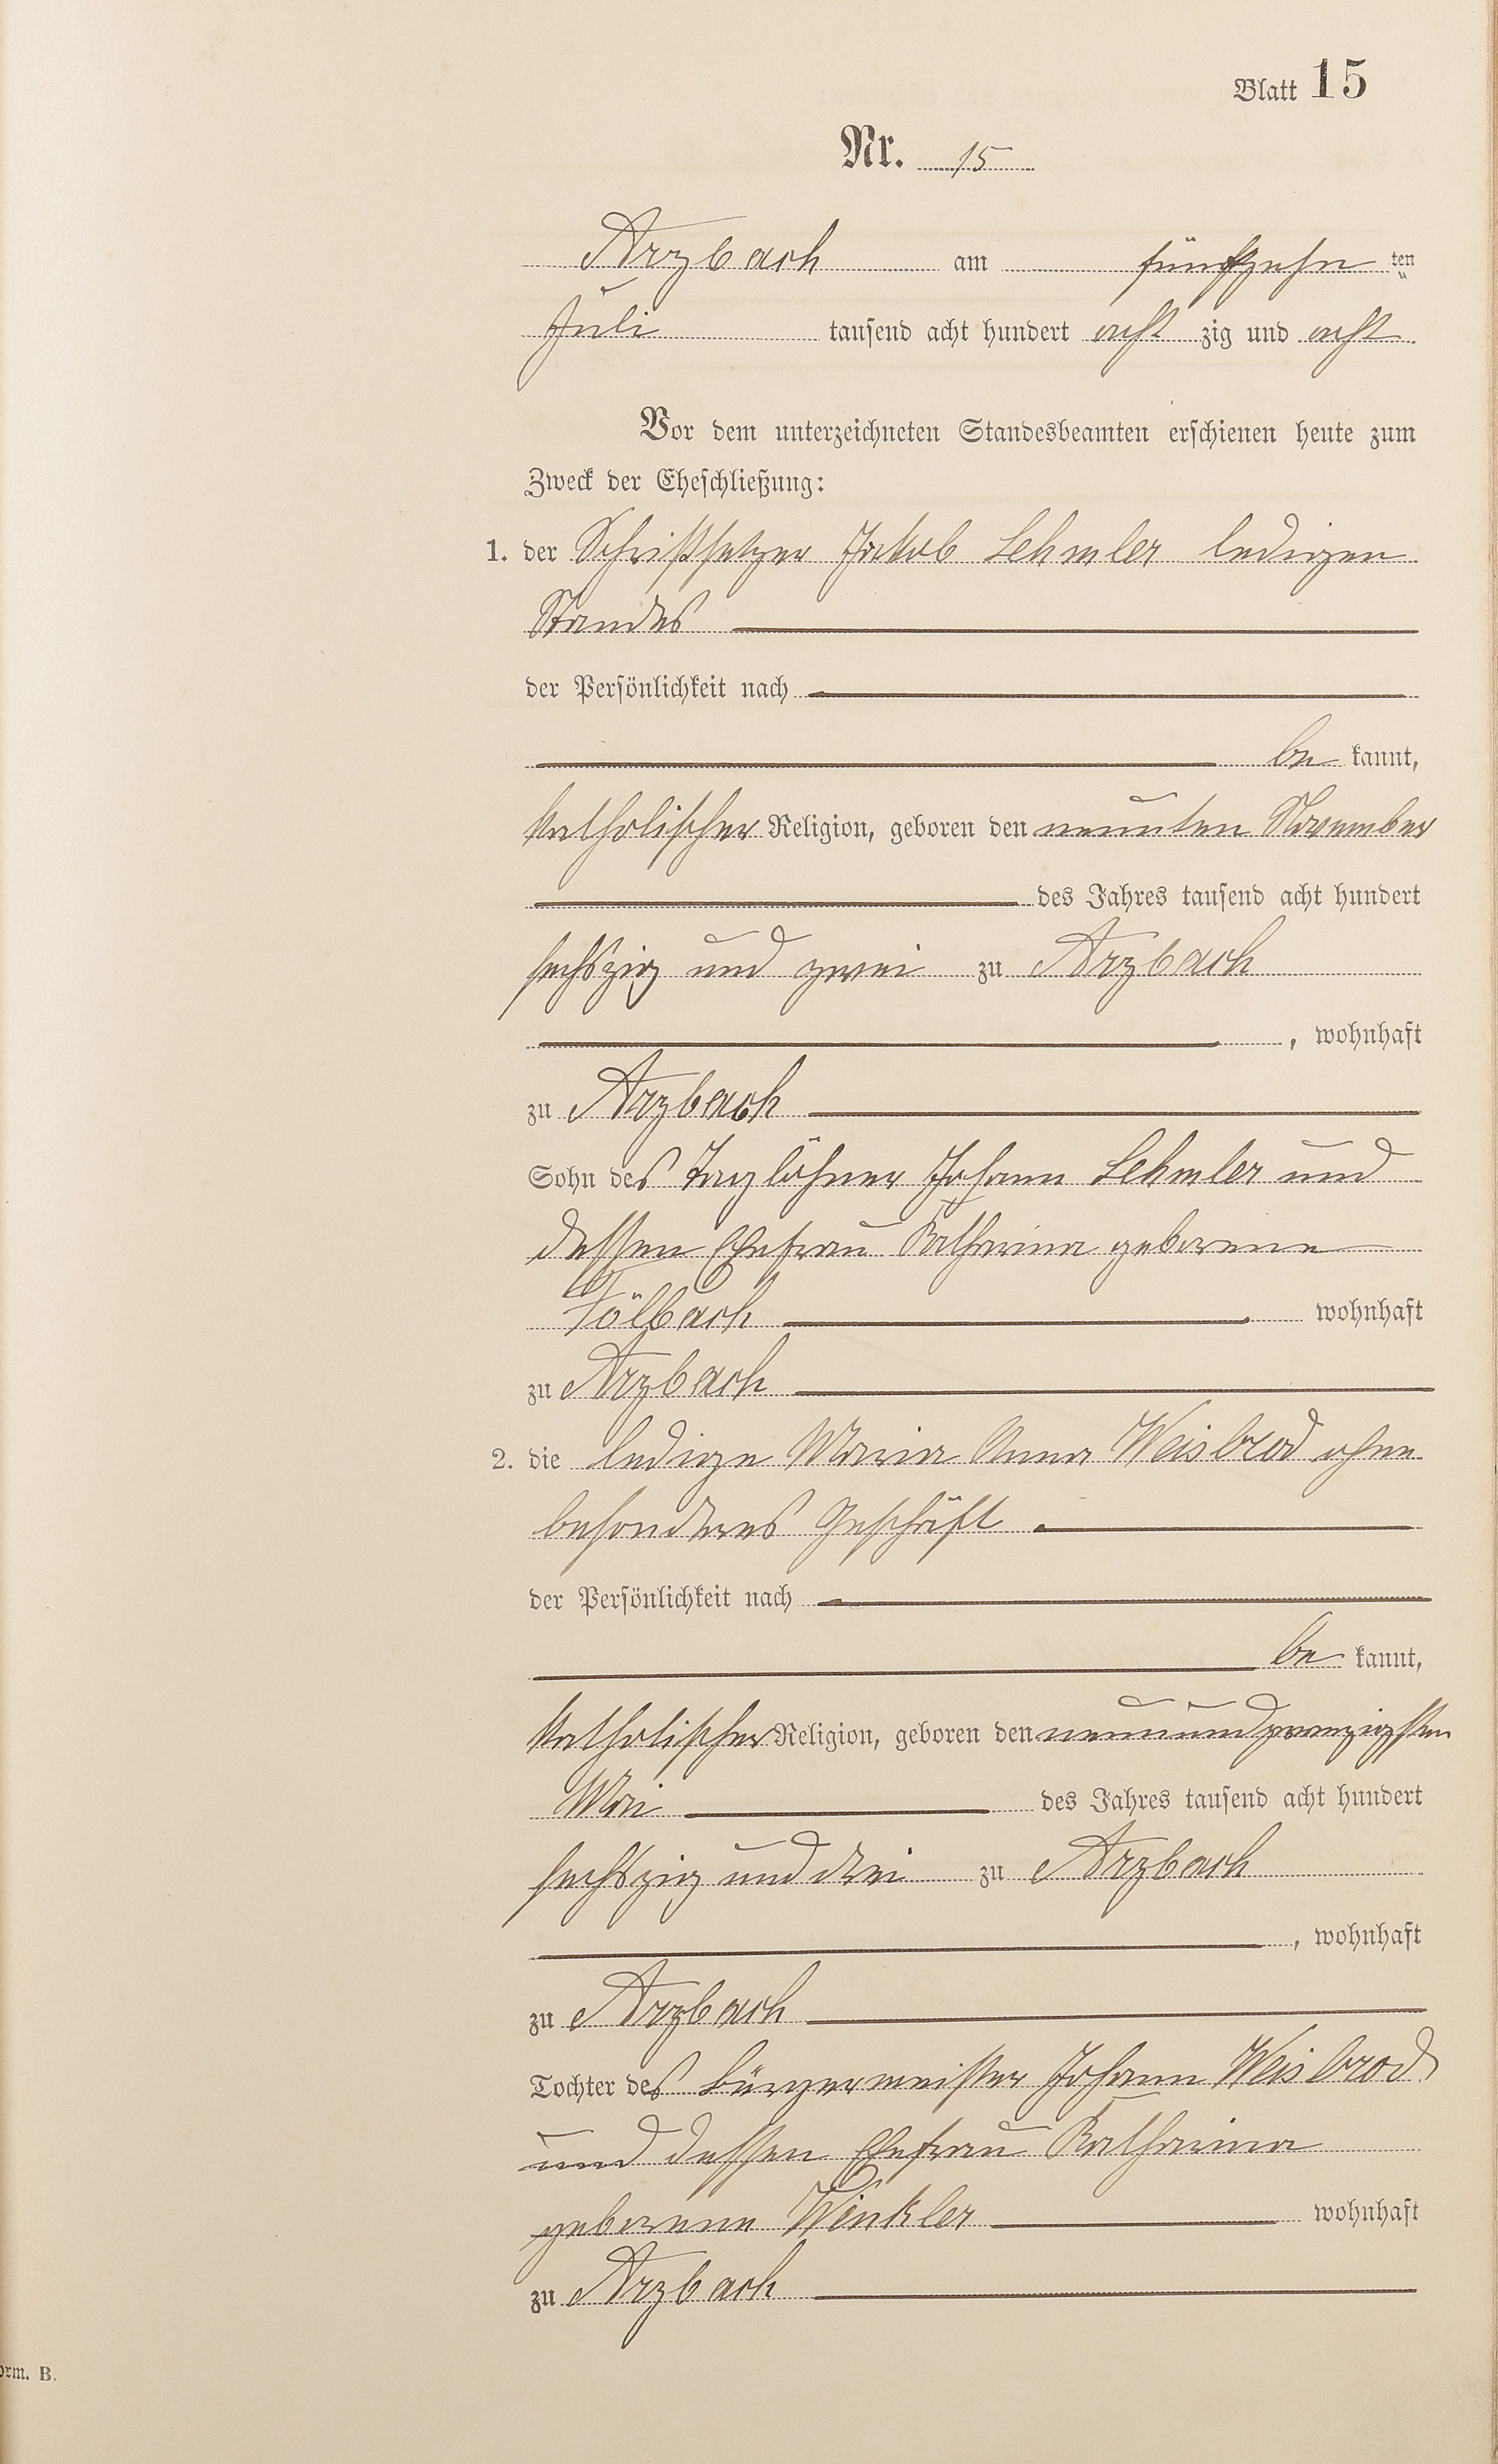 Blatt 15
Nr. 15
Arzbach am fünfzehn ten
Juli tausend acht hundert acht zig und acht
Vor dem unterzeichneten Standesbeamten erschienen heute zum
Zweck der Eheschließung:
1. der Schriftsetzer Jakob Lehmler ledigen
Standes
der Persönlichkeit nach
be kannt,
katholischer Religion, geboren den neunten November
des Jahres tausend acht hundert
sechszig und zwei zu Arzbach
, wohnhaft
zu Arzbach
Sohn des Taglöhner Johann Lehmler und
dessen Ehefrau Katharina geborene
Fölbach wohnhaft
zu Arzbach
2. die ledige Maria Anna Weisbrod ohne
besonderes Geschäft
der Persönlichkeit nach
be kannt,
katholischer Religion, geboren den neunundzwanzigsten
Mai des Jahres tausend acht hundert
sechszig und drei zu Arzbach
, wohnhaft
zu Arzbach
Tochter des Bürgermeister Johann Weisbrod
und dessen Ehefrau Katharina
geborene Winkler wohnhaft
zu Arzbach
orm. B.